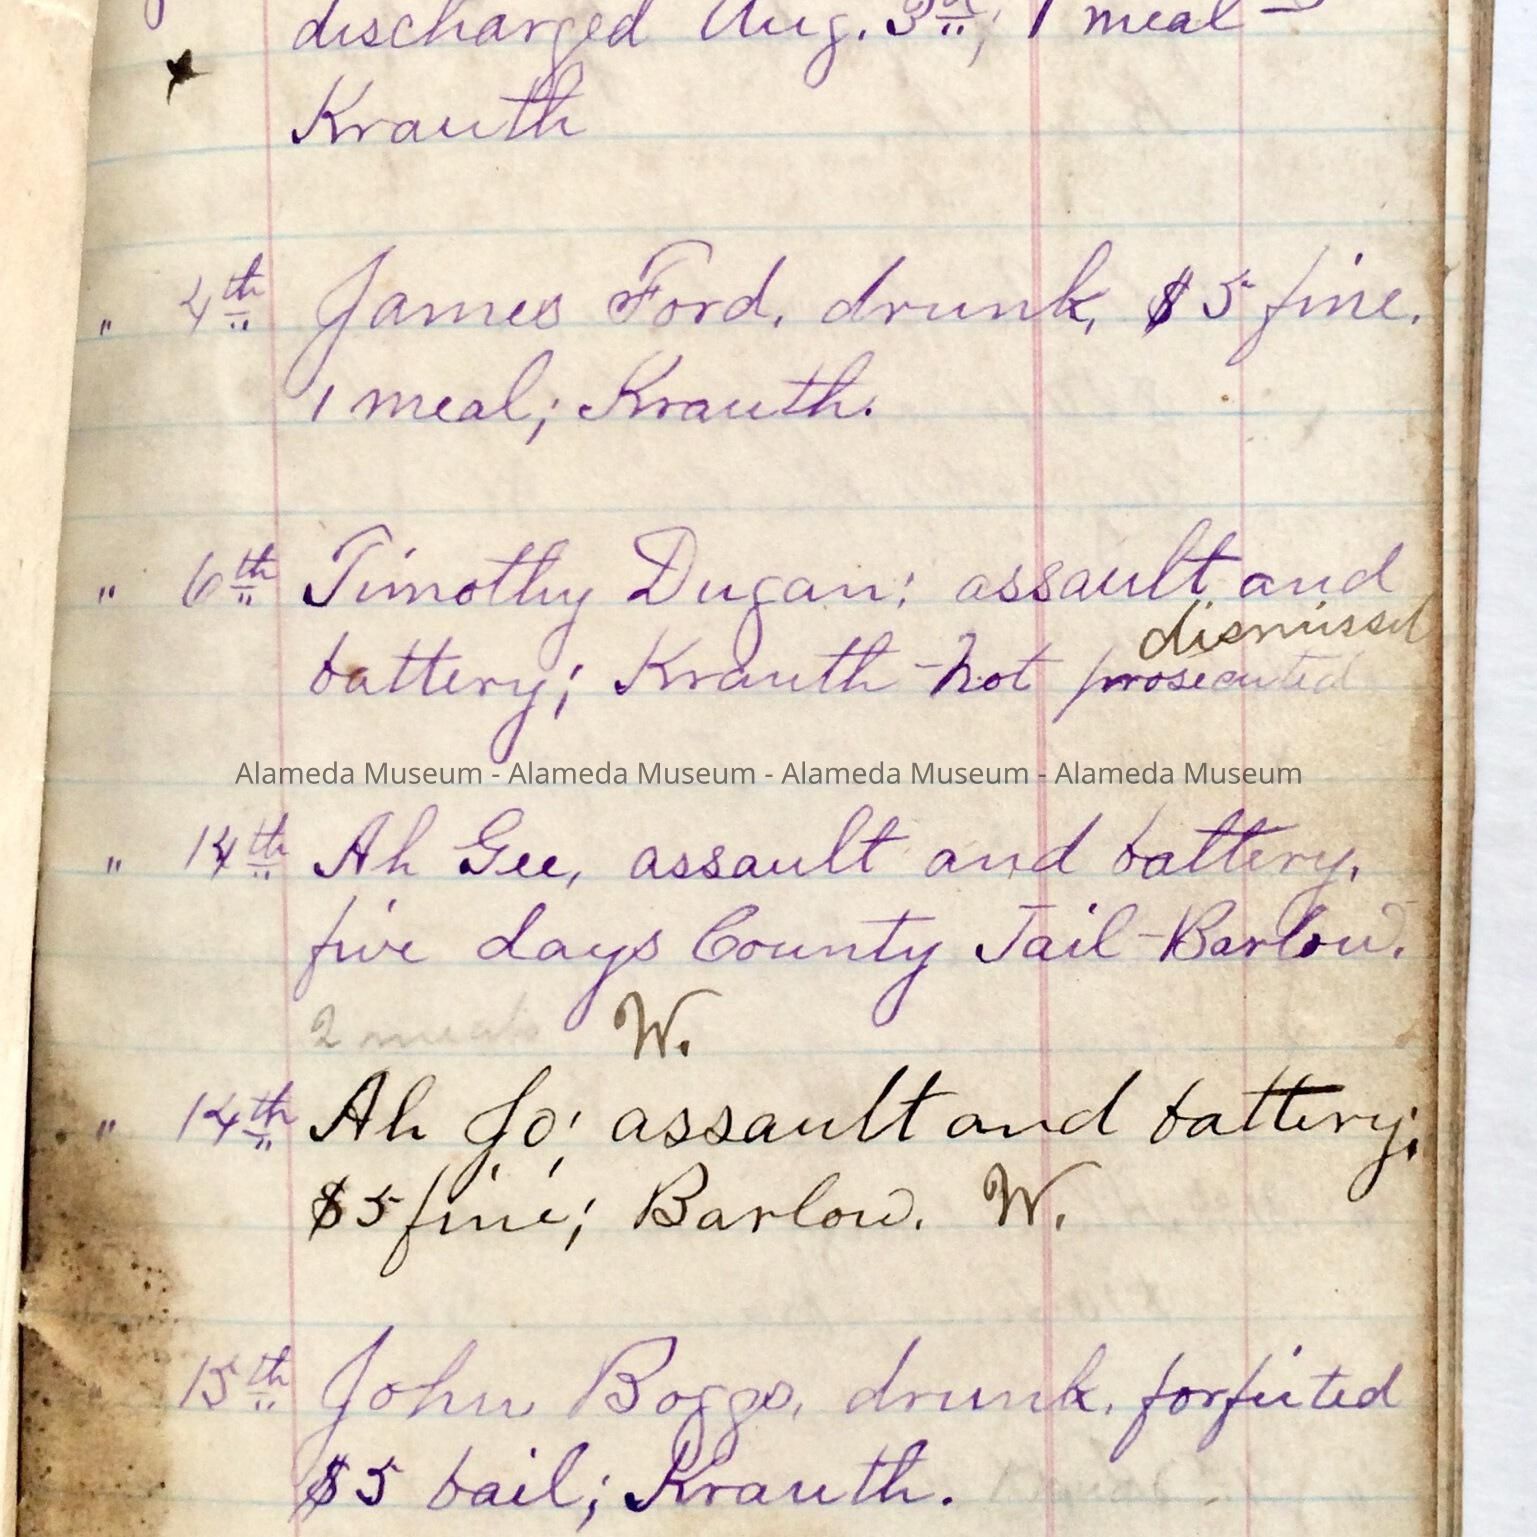 discharged Aug. 3rd; 1 meal
Krauth
" 4th James Ford, drunk, $5 fine.
1 meal; Krauth.
" 6th Timothy Dugan; assault and
dismissed
battery; Krauth - Not prosecuted
Alameda Museum - Alameda Museum - Alameda Museum - Alameda Museum
" 14th Ah Gee, assault and battery,
five days County Jail - Barlow.
2 meals W.
" 14th Ah Jo; assault and battery;
$5 fine; Barlow. W.
15th John Boggs, drunk, forfeited
$5 bail; Krauth.